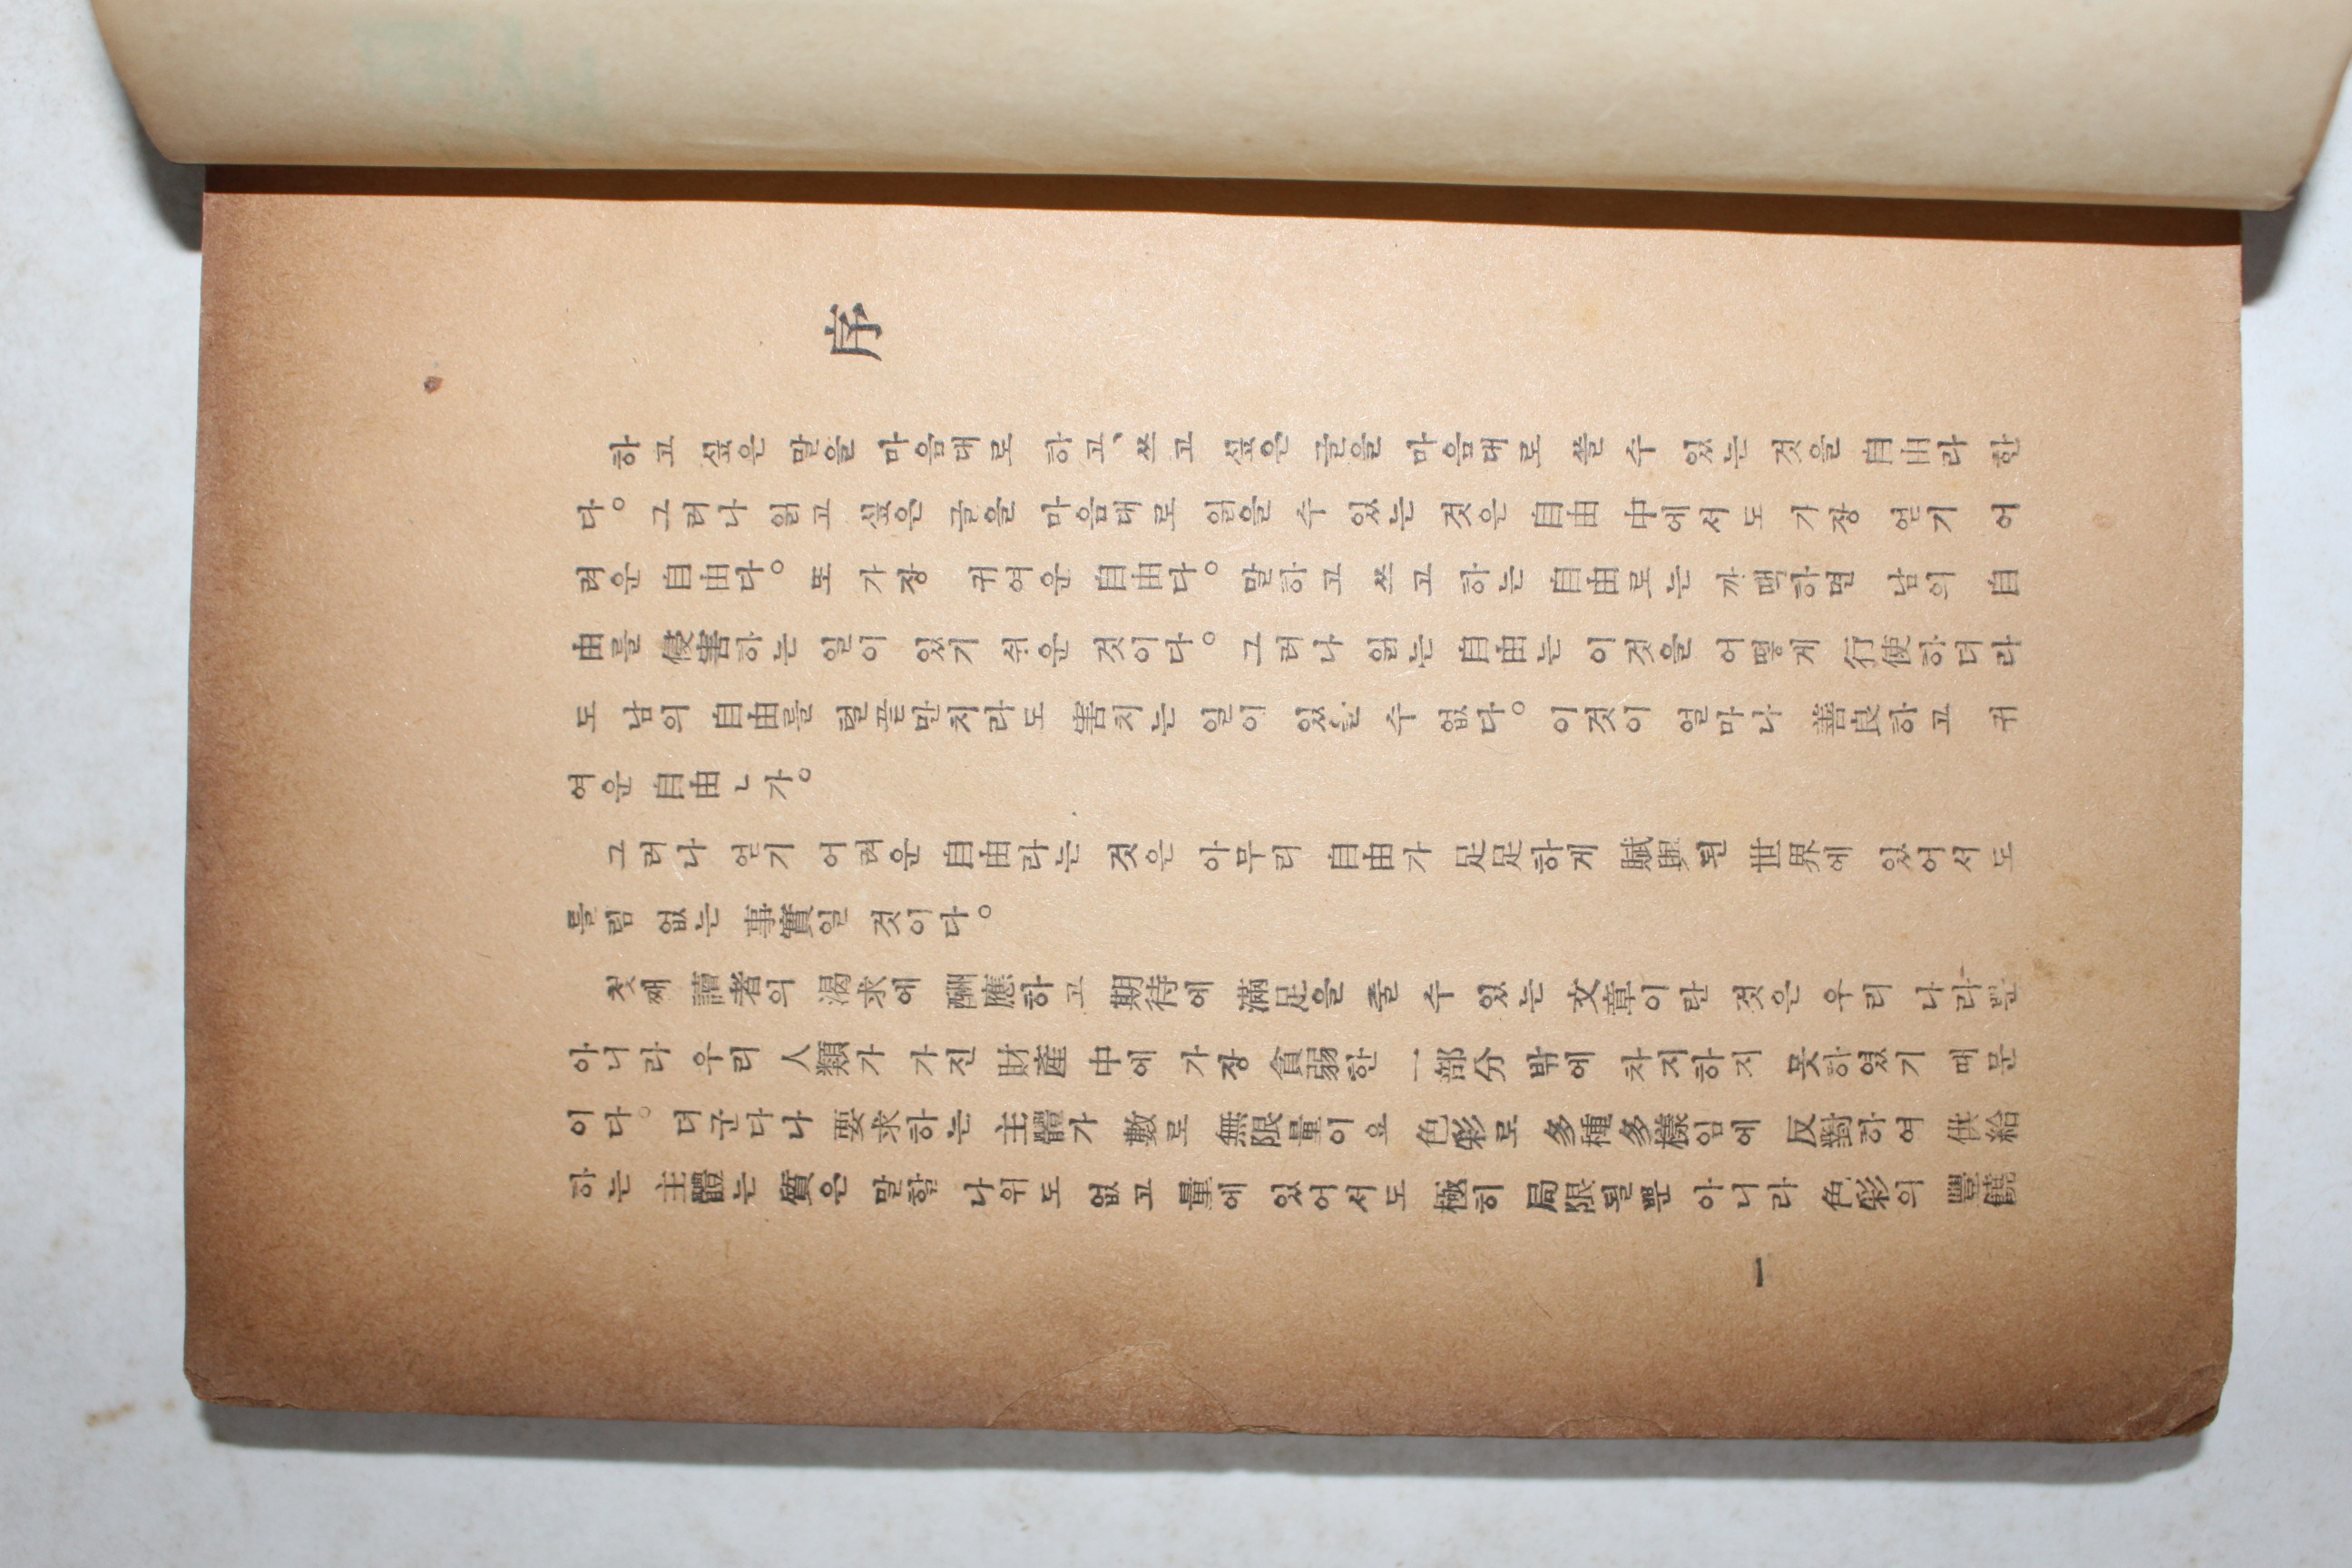 序
하고 싶은 말을 마음대로 하고、쓰고 싶은 글을 마음대로 쓸 수 있는 것을 自由라 한
다。그러나 읽고 싶은 글을 마음대로 읽을 수 있는 것은 自由 中에서도 가장 얻기 어
려운 自由다。또 가장 귀여운 自由다。말하고 쓰고 하는 自由로는 까땍하면 남의 自
由를 侵害하는 일이 있기 쉬운 것이다。그러나 읽는 自由는 이것을 어떻게 行使하더라
도 남의 自由를 털끝만치라도 害치는 일이 있을 수 없다。이것이 얼마나 善良하고 귀
여운 自由ㄴ가。
그러나 얻기 어려운 自由라는 것은 아무리 自由가 足足하게 賦與된 世界에 있어서도
틀림 없는 事實일 것이다。
첫째 讀者의 渴求에 酬應하고 期待에 滿足을 줄 수 있는 文章이란 것은 우리 나라뿐
아니라 우리 人類가 가진 財產中에 가장 貧弱한 一部分 밖에 차지하지 못하였기 때문
이다。더군다나 要求하는 主體가 數로 無限量이요 色彩로 多種多樣임에 反對하여 供給
하는 主體는 質은 말할 나위도 없고 量에 있어서도 極히 局限될뿐 아니라 色彩의 豐饒
一